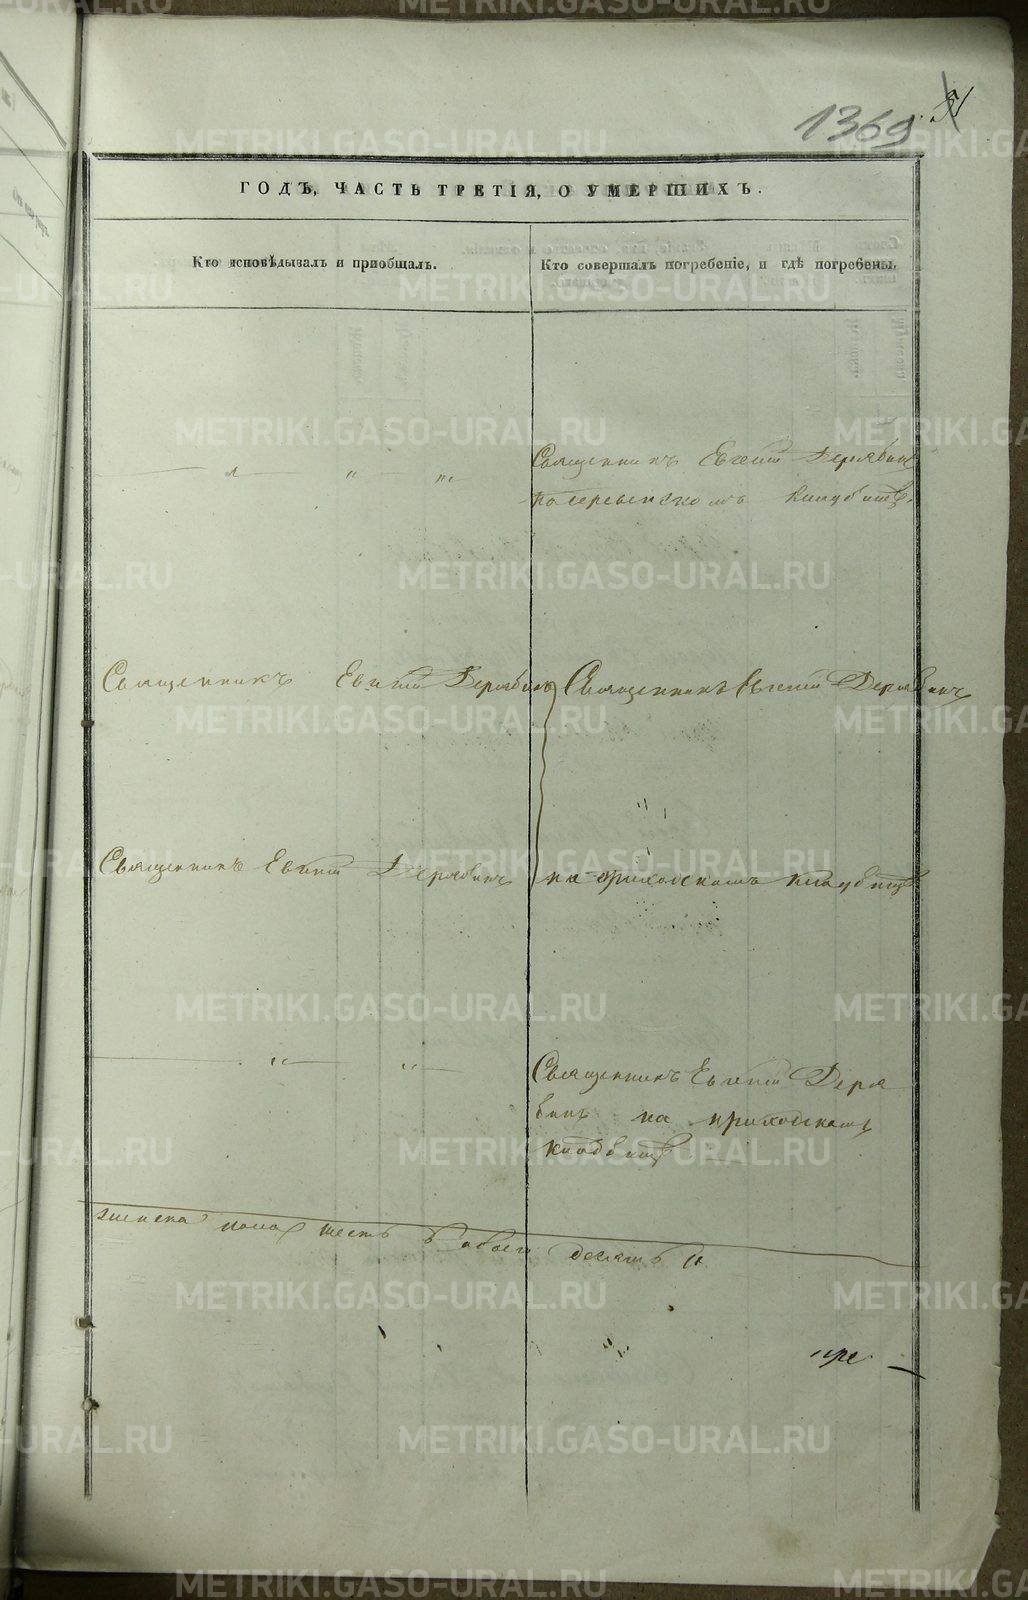 1369
ГОДЪ, ЧАСТЬ ТРЕТІЯ, О УМЕРШИХЪ.
Кто исповѣдывалъ и пріобщалъ.
Кто совершалъ погребеніе, и гдѣ погребены.
Священникъ Евгеній Дерябинъ
кладбищѣ.
Священникъ Евгеній Дерябинъ
Священникъ Евгеній Дерябинъ
Священникъ Евгеній Дерябинъ
на приходскомъ кладбищѣ
Священникъ Евгеній Деря
бинъ на приходскомъ
кладбищѣ
женска пола шесть обоего десять
METRIKI.GASO-URAL.RU